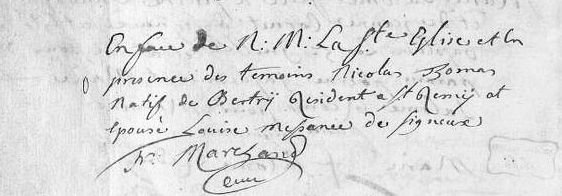 En face de N: M: La Ste Eglise et en
presence des temoins Nicolas Thomas
Natif de Bertrij Resident a St Remij at
Epousé Louise de Signeux
Marchand